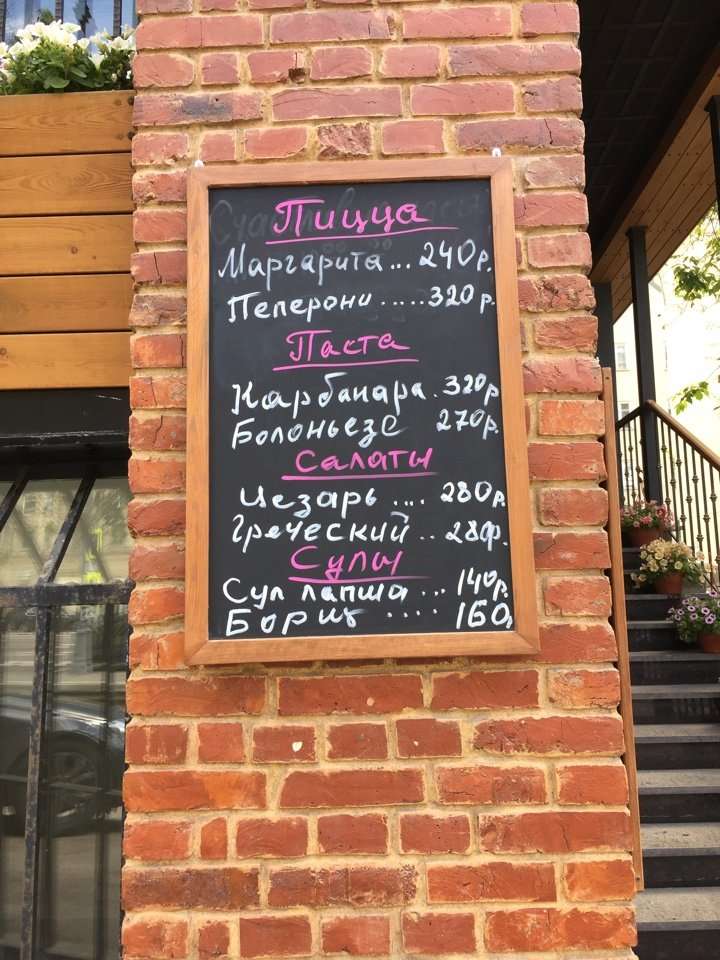 Пицца
Маргарита ... 240р.
Пеперони ..... 320р.
Паста
Карбанара . 320р
Болоньезе 270р.
Салаты
Цезарь .... 280р.
Греческий .. 28р.
Супы
Суп лапша ... 140р.
Борщ .... 160